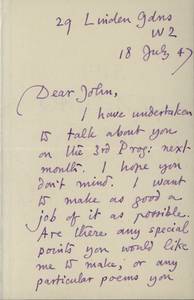 29 Linden Gdns
W2
18 July 47
Dear John,
I have undertaken
to talk about you
on the 3rd Prog: next
month. I hope you
don't mind. I want
to make as good a
job of it as possible.
Are there any special
points you would like
me to make, or any
particular poems you